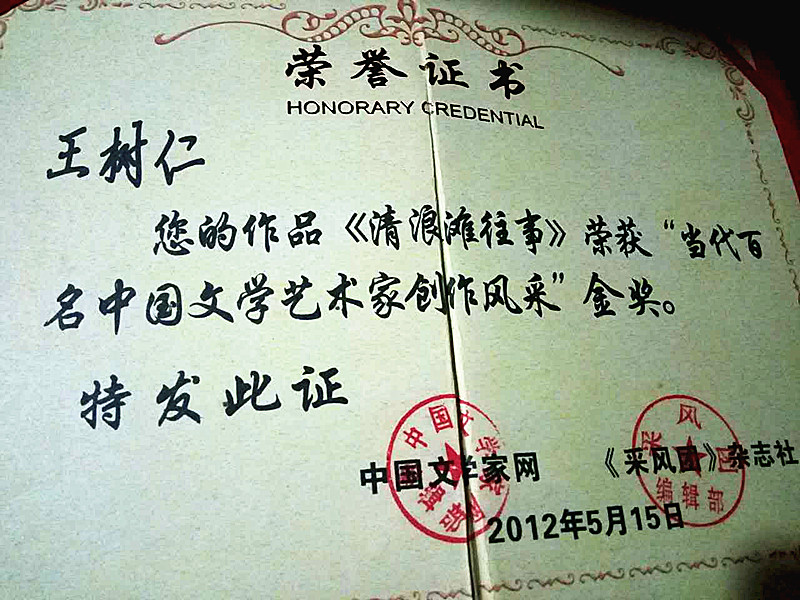 荣誉证书
HONORARY CREDENTIAL
王树仁
您的作品《清浪滩往事》荣获“当代百
名中国文学艺术家创作风采”金奖。
特发此证
中国文学家网 《采风图》杂志社
2012年5月15日
中国文学家网
采风图
编辑部